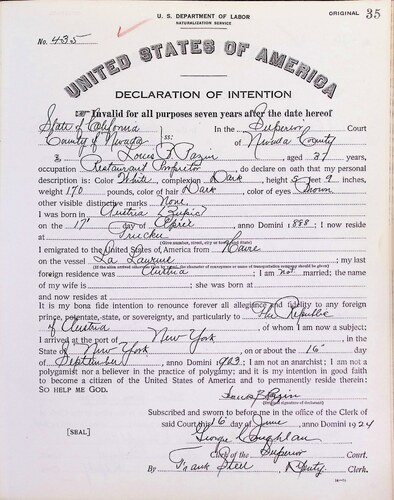 U. S. DEPARTMENT OF LABOR
NATURALIZATION SERVICE
ORIGINAL 35
No. 435
UNITED STATES OF AMERICA
DECLARATION OF INTENTION
Invalid for all purposes seven years after the date hereof
State of California
County of Nevada
ss:
In the Superior Court
of Nevada County
I, Louis F. Pazin, aged 37 years,
occupation Restaurant Propritor, do declare on oath that my personal
description is: Color White, complexion Dark, height 5 feet 9 inches,
weight 170 pounds, color of hair Dark, color of eyes Brown
other visible distinctive marks None
I was born in Austria (Zupic)
on the 17 day of April, anno Domini 1888; I now reside
at Truckee
(Give number, street, city or town, and State)
I emigrated to the United States of America from Havre
on the vessel La Lauraine; my last
foreign residence was Austria; I am not married; the name
of my wife is; she was born at
and now resides at
It is my bona fide intention to renounce forever all allegiance and fidelity to any foreign
prince, potentate, state, or sovereignty, and particularly to The Republic
of Austria, of whom I am now a subject;
I arrived at the port of New York, in the
State of New York, on or about the 16 day
of September, anno Domini 1903; I am not an anarchist; I am not a
polygamist nor a believer in the practice of polygamy; and it is my intention in good faith
to become a citizen of the United States of America and to permanently reside therein:
SO HELP ME GOD.
(Original signature of declarant)
Subscribed and sworn to before me in the office of the Clerk of
[SEAL]
said Court this 16 day of June, anno Domini 1924
George Coughlan
Clerk of the Superior Court.
By Frank Steel, Deputy Clerk.